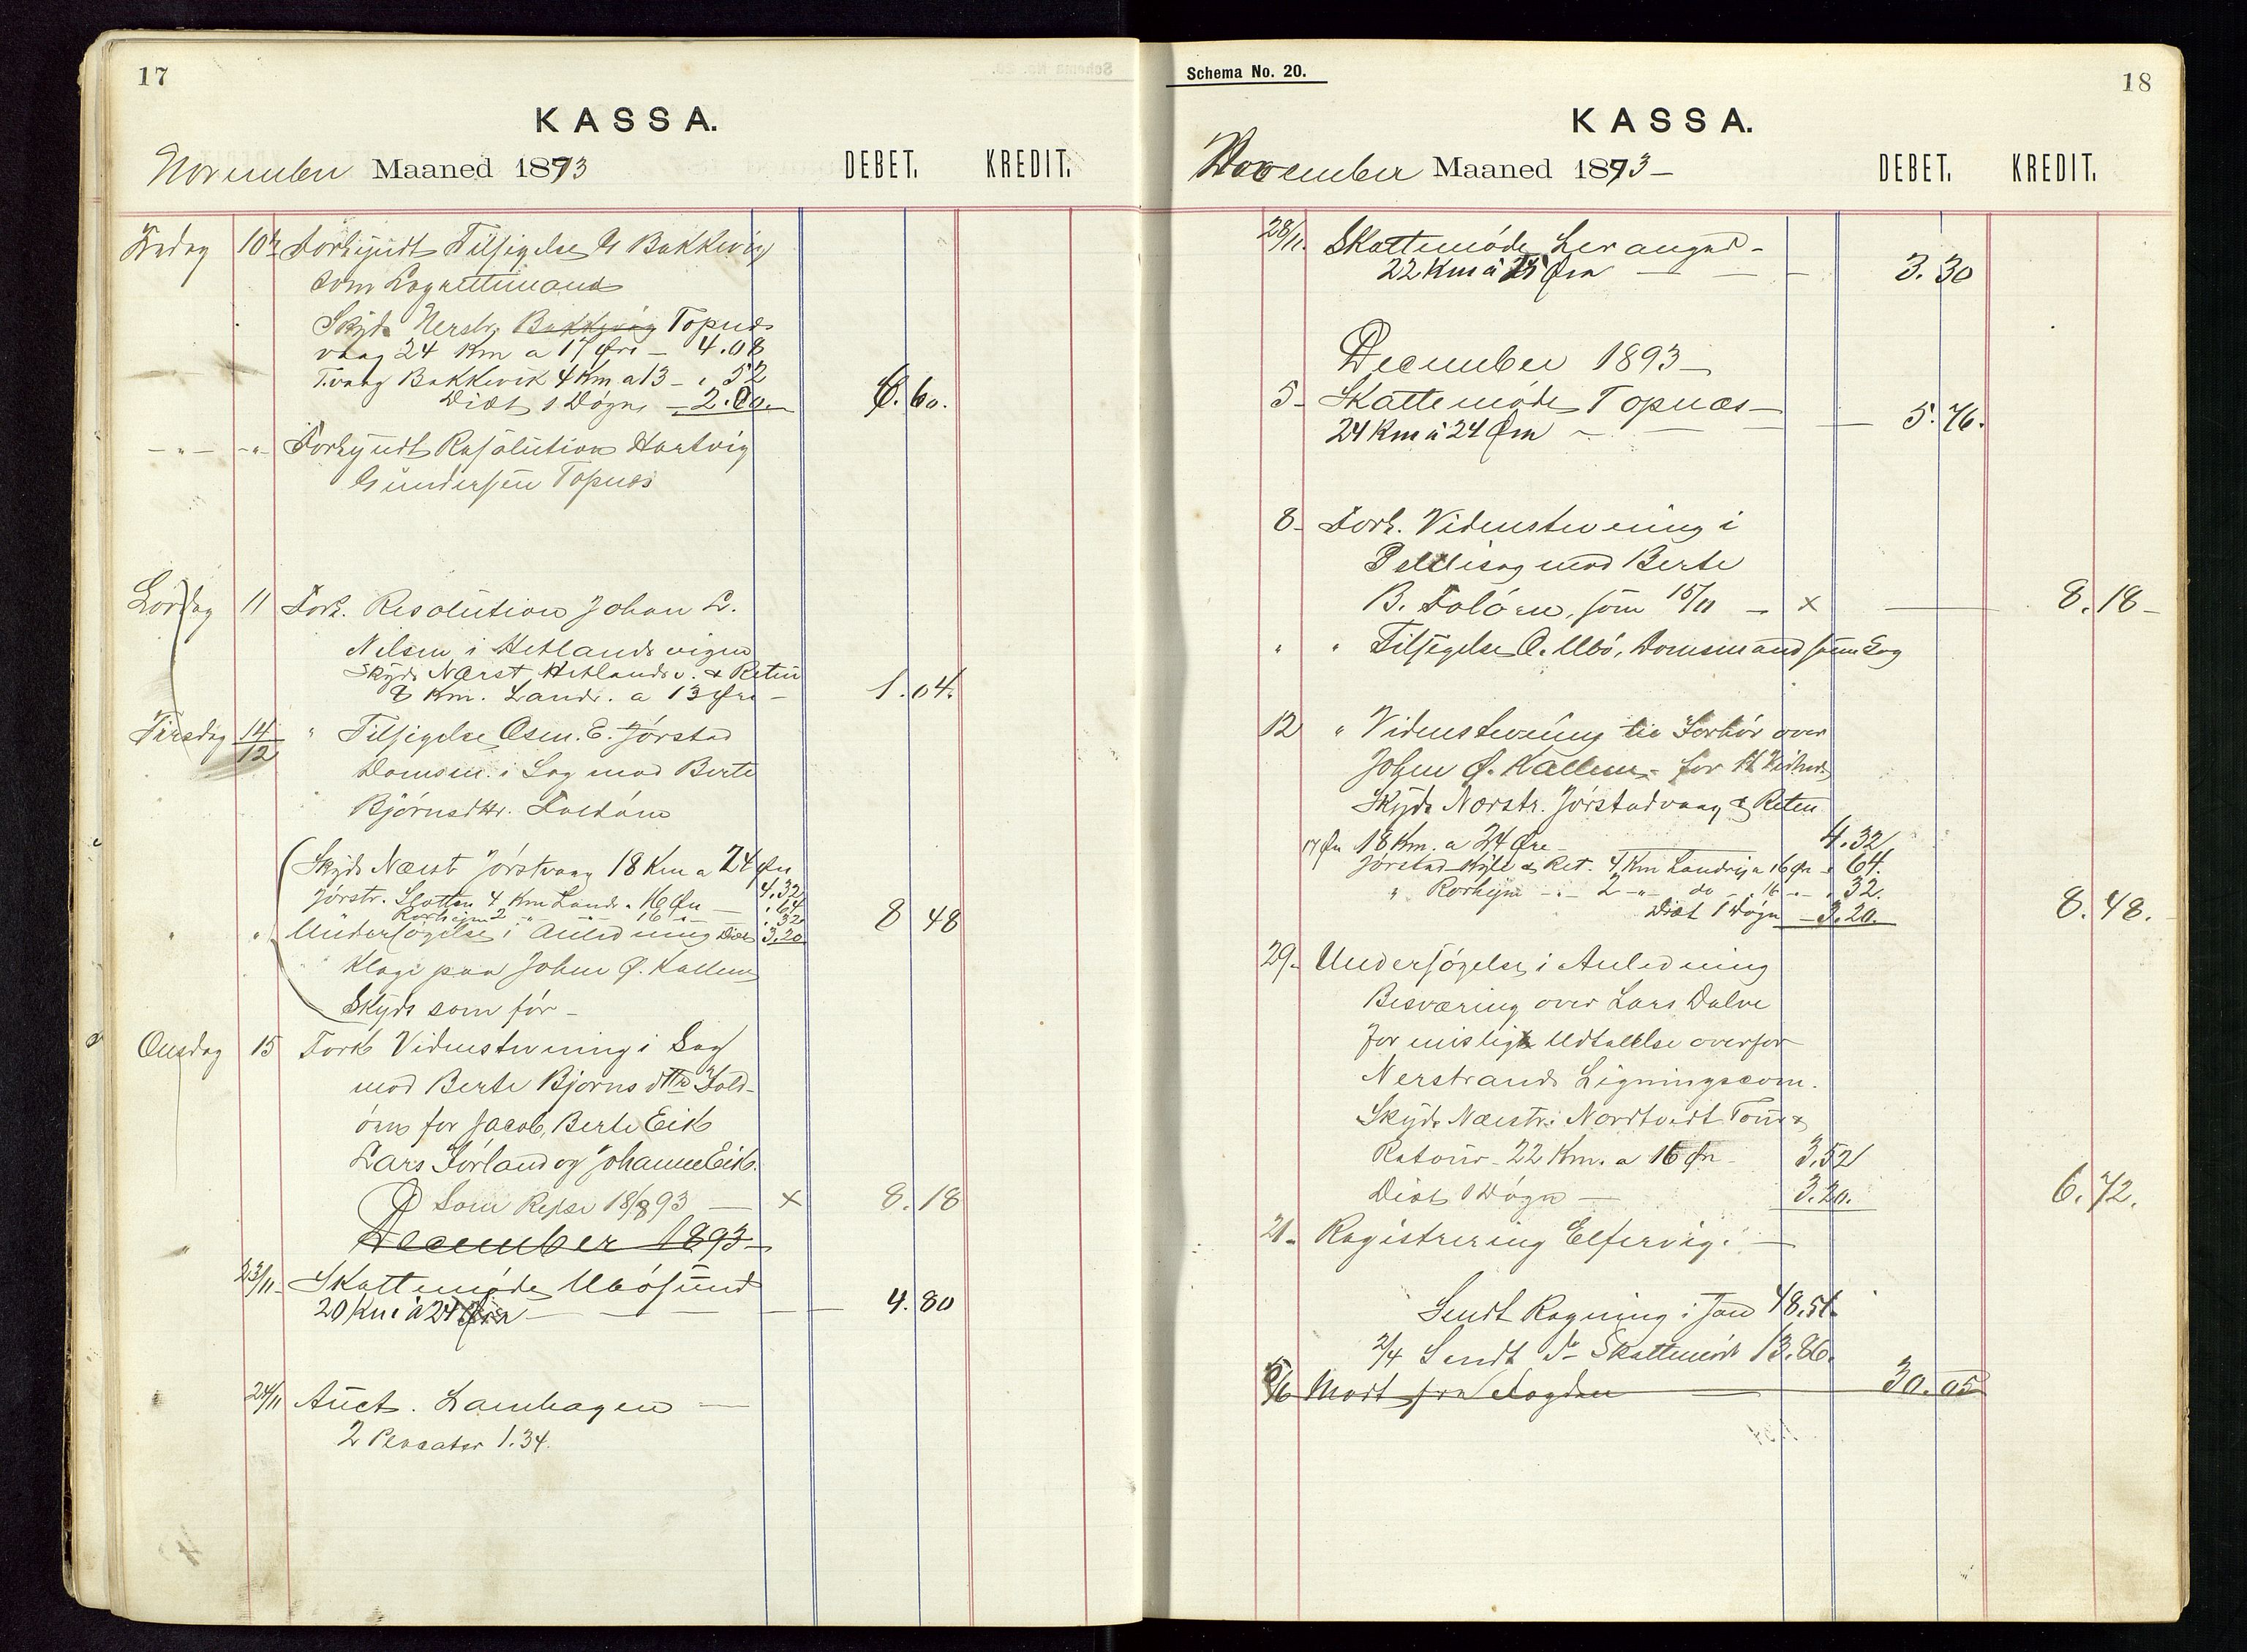 17
KASSA.
November Maaned 1893
DEBET. KREDIT.
Fredag 10de Forkyndt Tilsigelse G Bakkevig
som Lagrettemand
Skyds Nerstr. Bakkevig Topnæs
vaag 24 Km a 17 Øre - 4.08
T.vaag Bakkevik 4 Km a 13 - " 52
Diæt 1 Døgn - 2.00. 6.60.
- " - - " - Forkyndt Resolution Hartvig
Gundersen Topnes
Lørdag 11 Fork. Resolution Johan L.
Nilsen i Hetlandsvigen
Skyds Nærst Hetlandsv. & Retur
8 Km. Landv. a 13 Øre - 1.04.
Tirsdag 14/12 " Tilsigelse Osm. E. Jørstad
Domsm. i Sag mod Berte
Bjørnsdtr. Foldøen
Skyds Nærst Jørstvaag 18 Km a 24 Øre
4.32
Jørstr. Slotten 4 Km Landv. a 16 Øre - " 64
Rorheim 2 - " - - " - 16 " - " 32 8 48
" Undersøgelse i Anledning Diæt 3.20
Klage paa John Ø. Kallem
Skyds som før -
Onsdag 15 Fork Vidnestevning i Sag
mod Berte Bjørnsdttr Fold-
øen for Jacob, Berte Eik
Lars Førland og Johanne Eik.
Som Rejse 18/8 93 - x 8.18
December 1893
23/11 - Skattemøde Ubøsund
20 Km à 24 Øre - - - 4.80
24/11 Auct. Lamhagen -
2 Placater 1.34.
Schema No. 20.
18
KASSA.
November Maaned 1893 -
DEBET. KREDIT.
28/11. Skattemøde Leranger -
22 Km à 15 Øre - - - 3.30
December 1893 -
5 - Skattemøde Topnæs -
24 Km à 24 Øre - - - 5.76.
8 - Fork. Vidnestevning i
Politisag mod Berte
B. Foldøen, som 15/11 - x 8.18 -
" " Tilsigelse O. Ubø, Domsmand samme Sag
12 " Vidnestevning til Forhør over
John Ø. Kallem - for
Skyds Nerstr. Jørstadvaag & Reten
17 Øre 18 Km. a 24 Øre - 4.32
Jørstad - & Ret. 4 Km Landvej a 16 Øre " 64.
" Rorheim - " - 2 - " - do - " 16 - " - " 32.
Diæt 1 Døgn - 3.20. 8.48.
29 - Undersøgelse i Anledning
Besværing over Lars Dalve
for mislig Udtalelse overfor
Nerstrands Ligningscom.
Skyds Næstr. Nordtvedt Tour &
Retour - 22 Km. a 16 Øre - 3.52
Diæt 1 Døgn - 3.20. 6.72.
21 - Registrering Elfervig. -
Sendt Regning i Jan 48.51.
2/4 Sendt do Skattemøde 13.86.
5/6 Modt fra Fogden 30.05